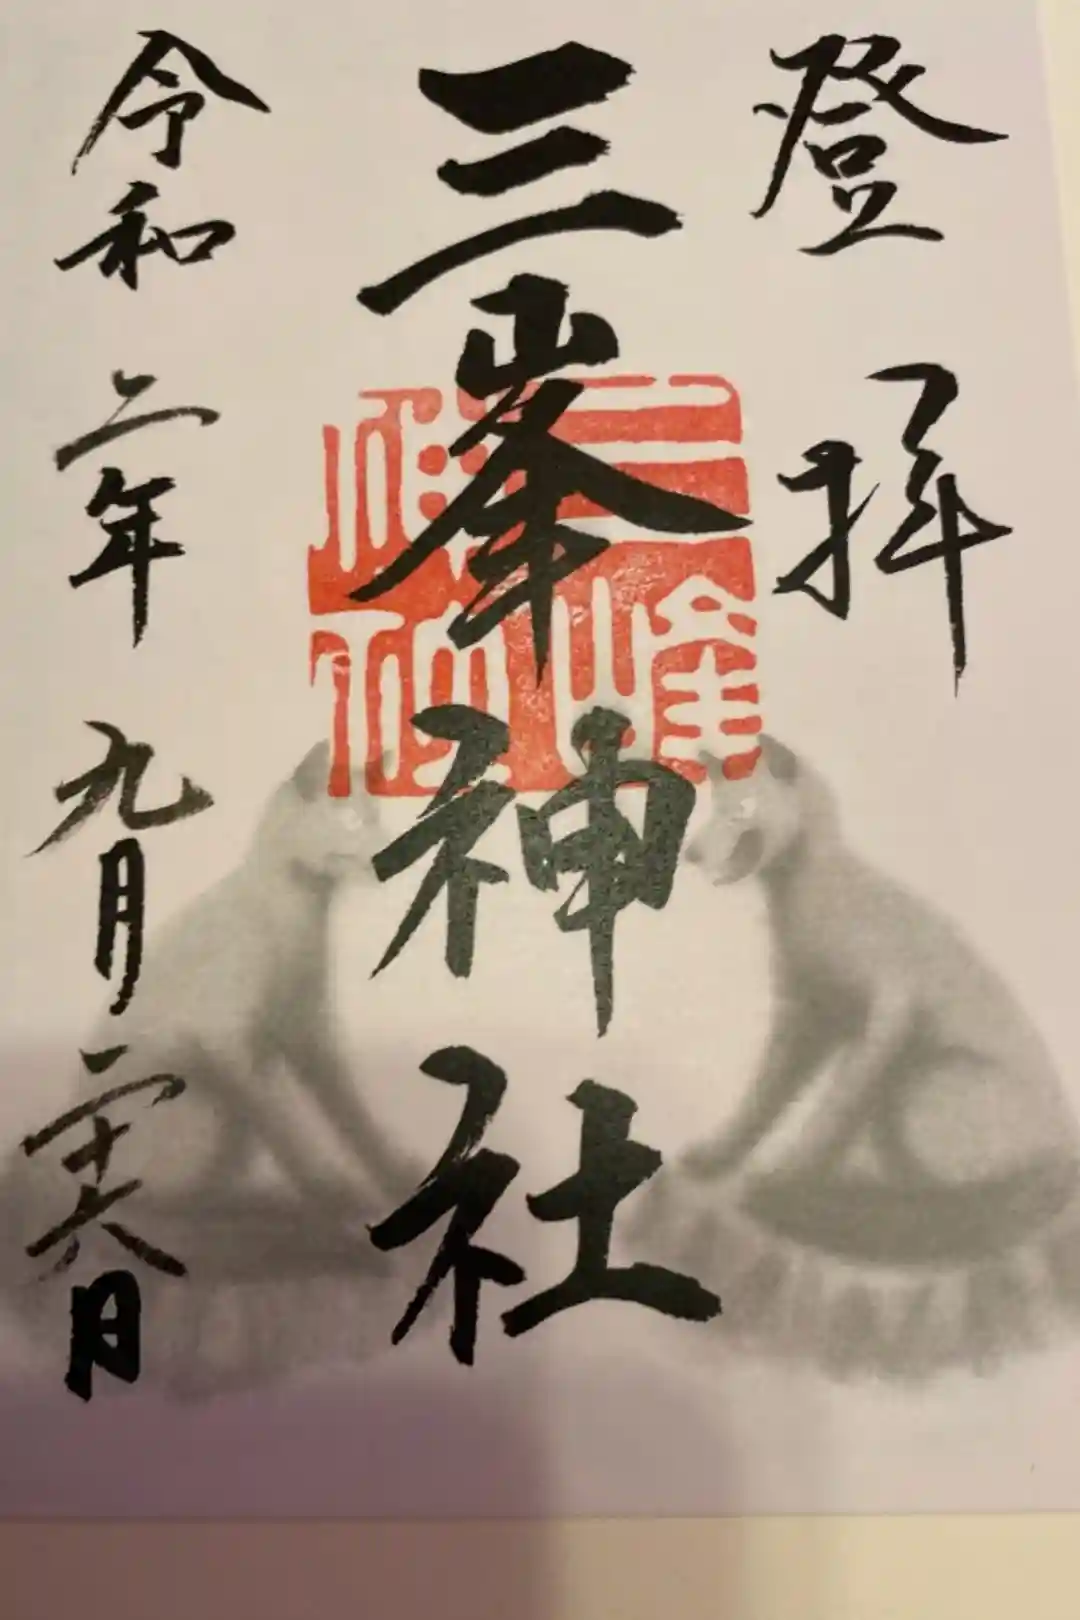 登拝
三峯神社
令和二年九月二十六日